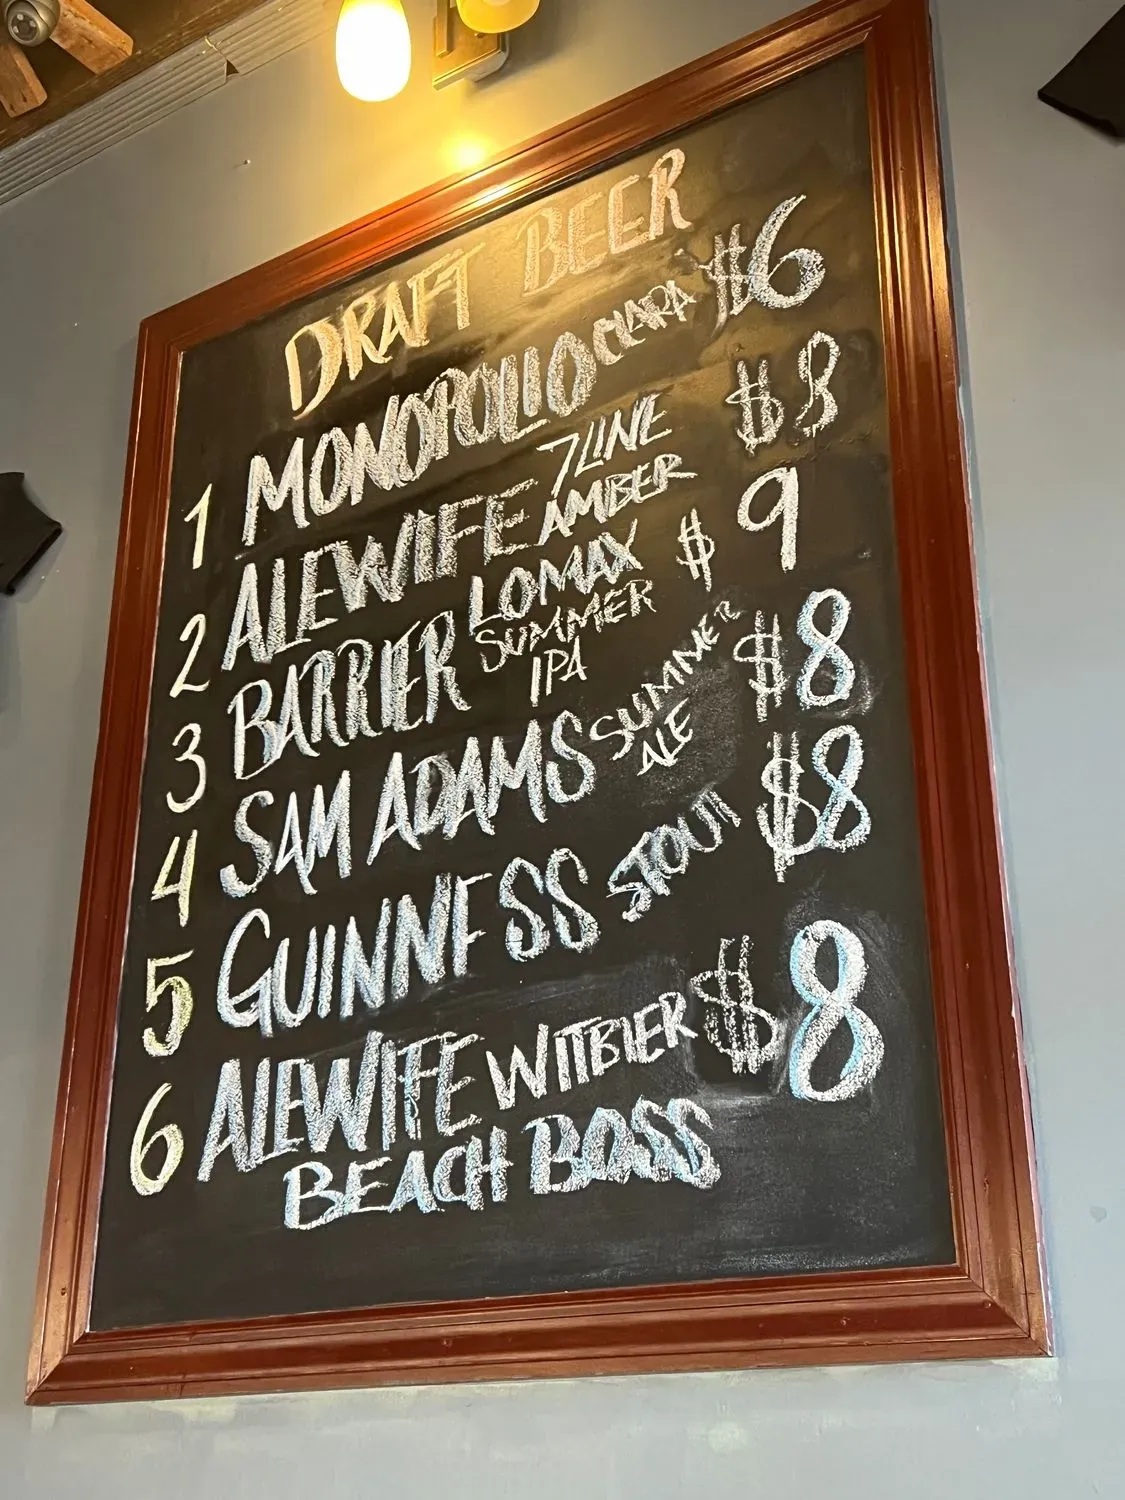 DRAFT BEER
1 MONOPOLLO CLARA $6
2 ALEWIFE 7LINE AMBER $8
3 BARRIER LOMAX SUMMER IPA $9
4 SAM ADAMS SUMMER ALE $8
5 GUINNESS STOUT $8
6 ALEWIFE WITBIER $8
BEACH BOSS